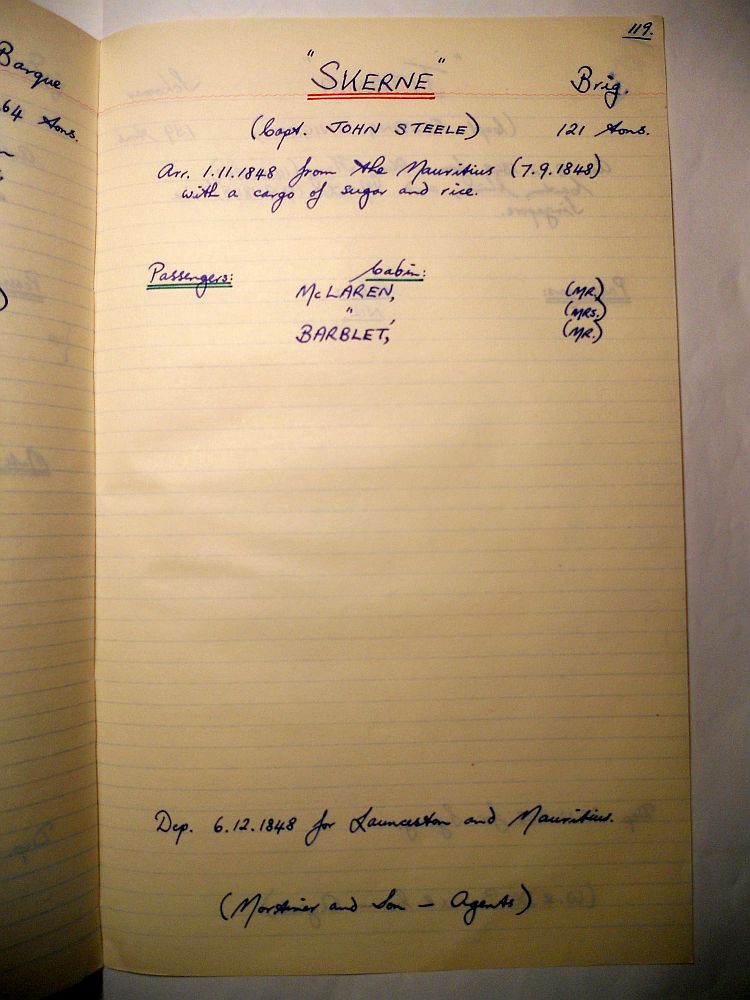 Barque
64 tons.
119.
"SKERNE" Brig.
(Capt. JOHN STEELE) 121 tons.
Arr. 1.11.1848 from the Mauritius (7.9.1848)
with a cargo of sugar and rice.
Passengers: Cabin:
McLAREN, (MR.)
" , (MRS.)
BARBLET, (MR.)
Dep. 6.12.1848 for Launceston and Mauritius.
(Mortimer and Son — Agents)